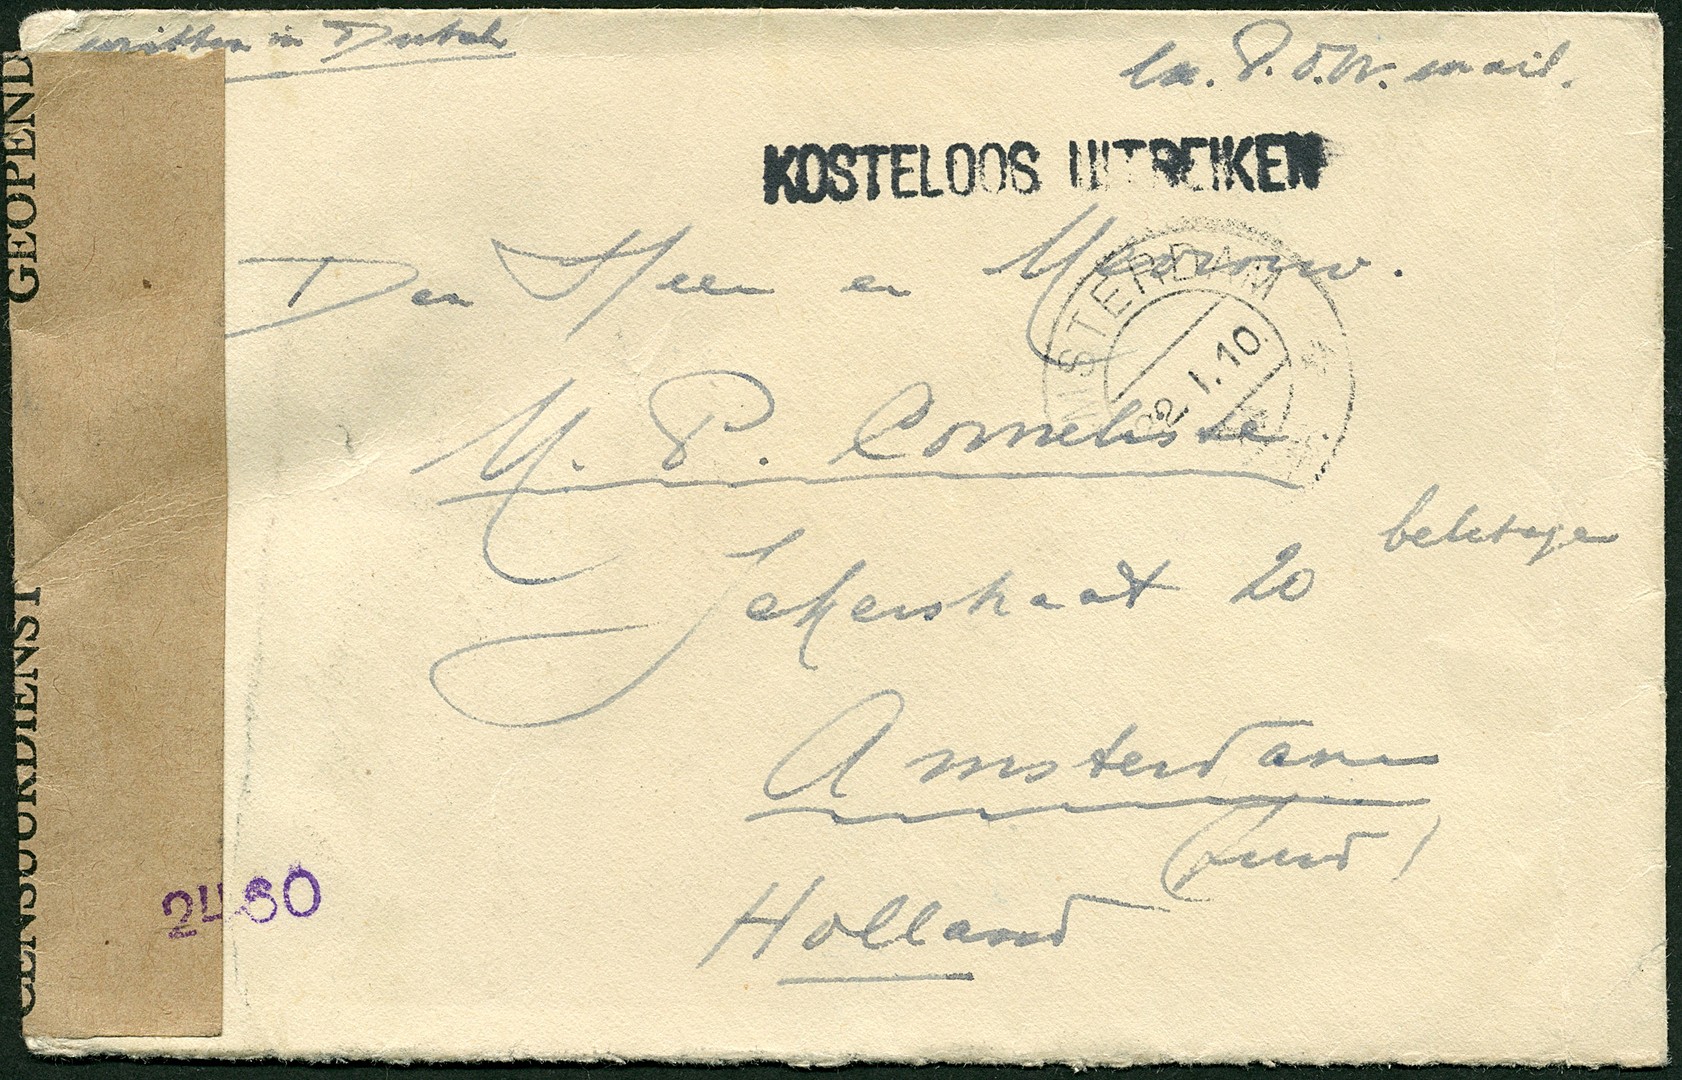 written in Dutch
Ex. P.O.W. mail.
KOSTELOOS UITREIKEN
Den Heer en Mevrouw.
AMSTERDAM
1.10
M. P. Cornelisse
beletage
Jekerstraat 20
Amsterdam
Zuid
Holland
GEOPEND
CENSUURDIENST
2460